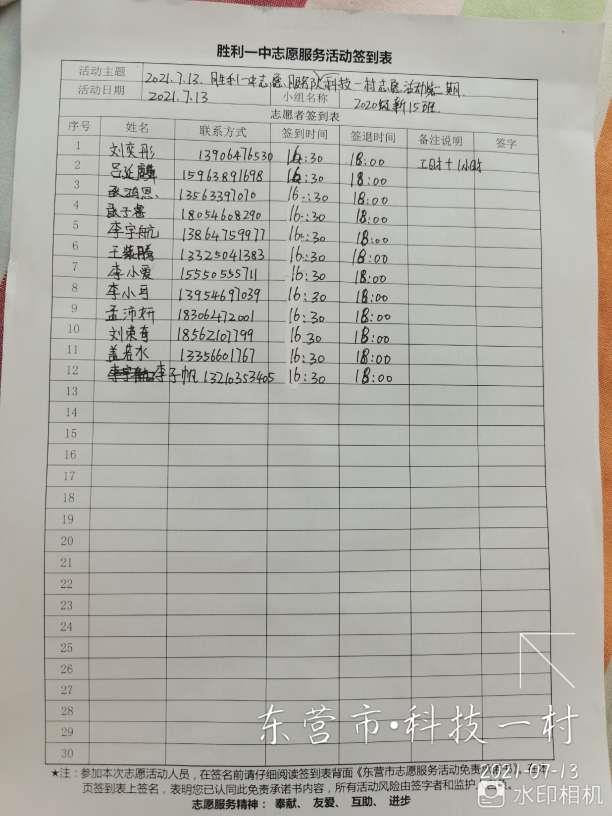 胜利一中志愿服务活动签到表
活动主题 2021.7.13.胜利一中志愿服务队科技一村志愿活动第一期.
活动日期 2021.7.13 小组名称 2020级新15班.
志愿者签到表
序号 姓名 联系方式 签到时间 签退时间 备注说明 签字
1 刘奕彤 13906476530 16:30 18:00 工时+1小时
2 麟 15963891698 16:30 18:00
3 鸿恩 13563397070 16:30 18:00
4 子睿 18054608290 16:30 18:00
5 李宇航 13864759977 16:30 18:00
6 王腾 13325041383 16:30 18:00
7 李小爱 15550555711 16:30 18:00
8 李小可 13954697039 16:30 18:00
9 孟沛妍 18306472001 16:30 18:00
10 刘東奇 18562107799 16 30 18:00
11 盖若水 13356601767 16:30 18:00
12 李子帆 13210353405 16:30 18:00
13
14
15
16
17
18
19
20
21
22
23
24
25
26
27
28
29
30
★注：参加本次志愿活动人员，在签名前请仔细阅读签到表背面《东营市志愿服务活动免责
页签到表上签名，表明您已认同此免责承诺书内容，所有活动风险由签字者和监护
志愿服务精神：奉献、友爱、互助、进步
东营市·科技一村
2021-07-13
水印相机